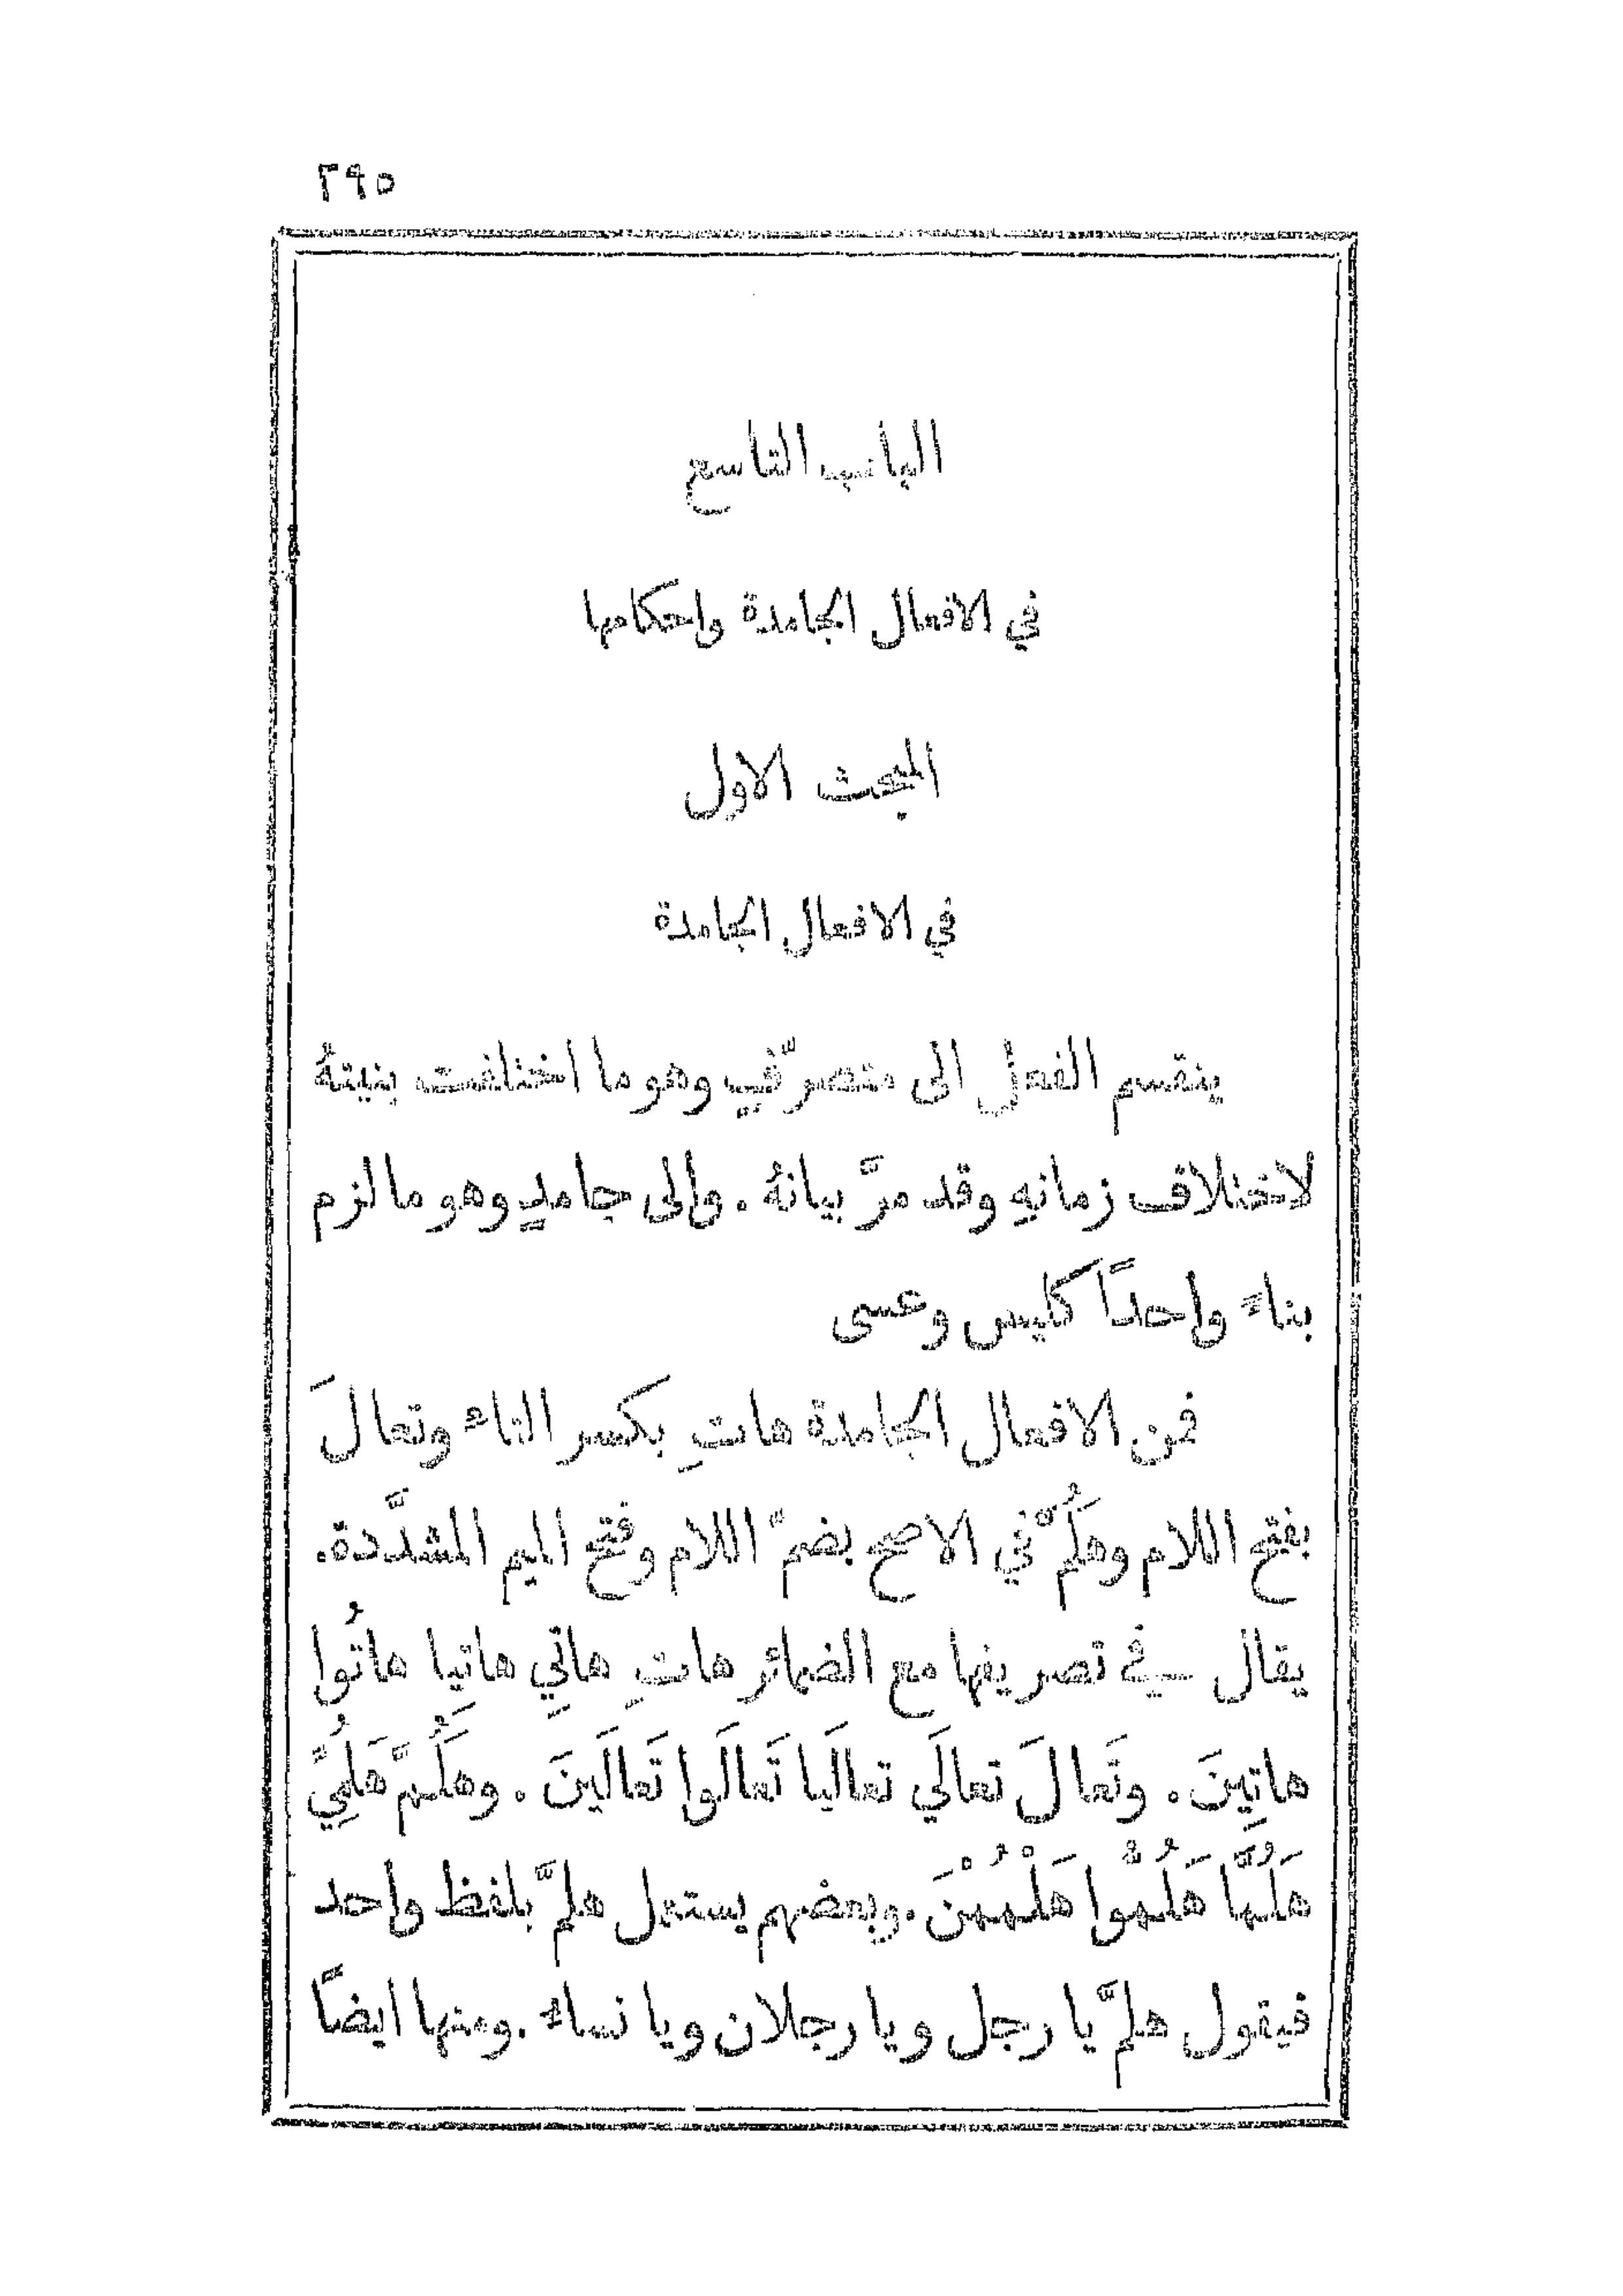 ٢٩٥
الباب التاسع
في الافعال الجامدة واحكامها
المبحث الاول
في الافعال الجامدة
ينقسم الفعل الى متصرّفٍ وهو ما اختلفت بنيتهُ
لاختلاف زمانهِ وقد مرَّ بيانهُ . والى جامدٍ وهو ما لزم
بناءً واحدًا كليس وعسى
فمن الافعال الجامدة هاتِ بكسر التاء وتعالَ
بفتح اللام وهَلُمَّ في الاصح بضمّ اللام وفتح الميم المشدَّدة .
يقال في تصريفها مع الضمائر هاتِ هاتِي هاتِيا هاتُوا
هاتِينَ . وتَعالَ تعالَي تعالَيا تَعالَوا تَعالَينَ . وهَلُمَّ هَلُمِّي
هَلُمَّا هَلُمُّوا هَلْمُمْنَ . وبعضهم يستعمل هلمَّ بلفظ واحد
فيقول هلمَّ يا رجل ويا رجلان ويا نساء . ومنها ايضًا